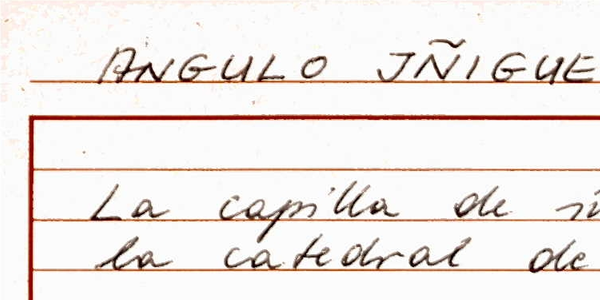 ANGULO JÑIGUE
La capilla de
la catedral de